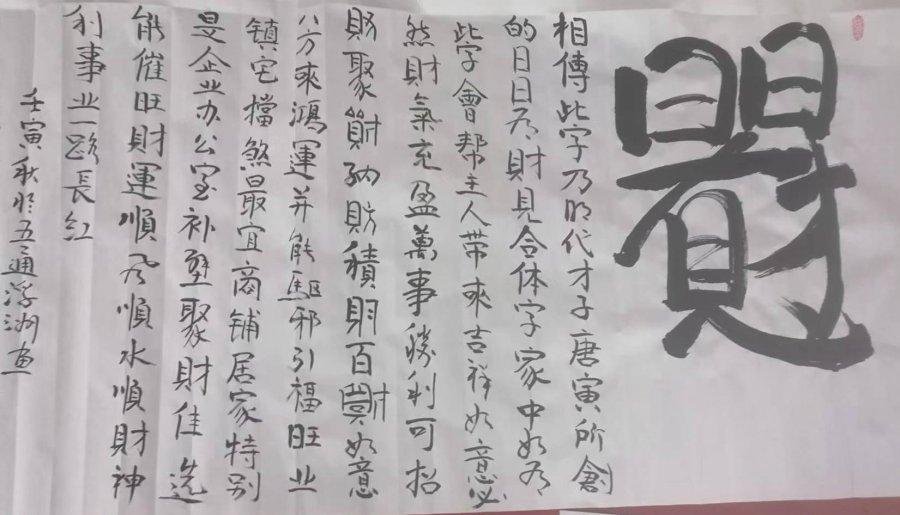 相傳此字乃明代才子唐寅所創
的日日有財見合体字家中如有
此字會帮主人带來吉祥如意必
然財氣充盈萬事勝利可招
財聚財納財積財百財如意
八方來鴻運并能驅邪引福旺业
镇宅擋煞最宜商铺居家特别
是企业办公室补壁聚財佳选
能催旺財運順风順水順財神
利事业一路長红
壬寅秋於五通浮湖画